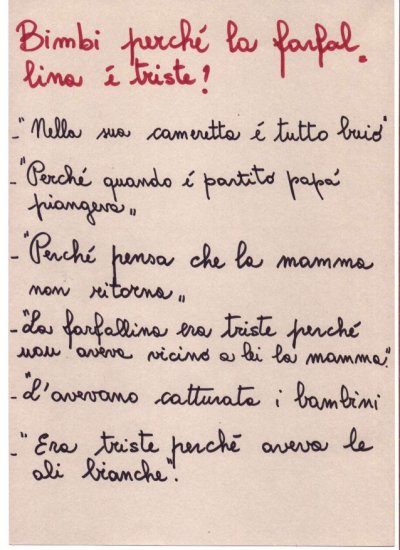 Bimbi perché la farfal.
lina é triste!
-"Nella sua cameretta é tutto buio"
-"Perché quando é partito papá
piangeva„
-"Perché pensa che la mamma
non ritorna„
-"La farfallina era triste perché
non aveva vicino a lei la mamma".
-"L'avevano catturata i bambini
-"Era triste perché aveva le
ali bianche".